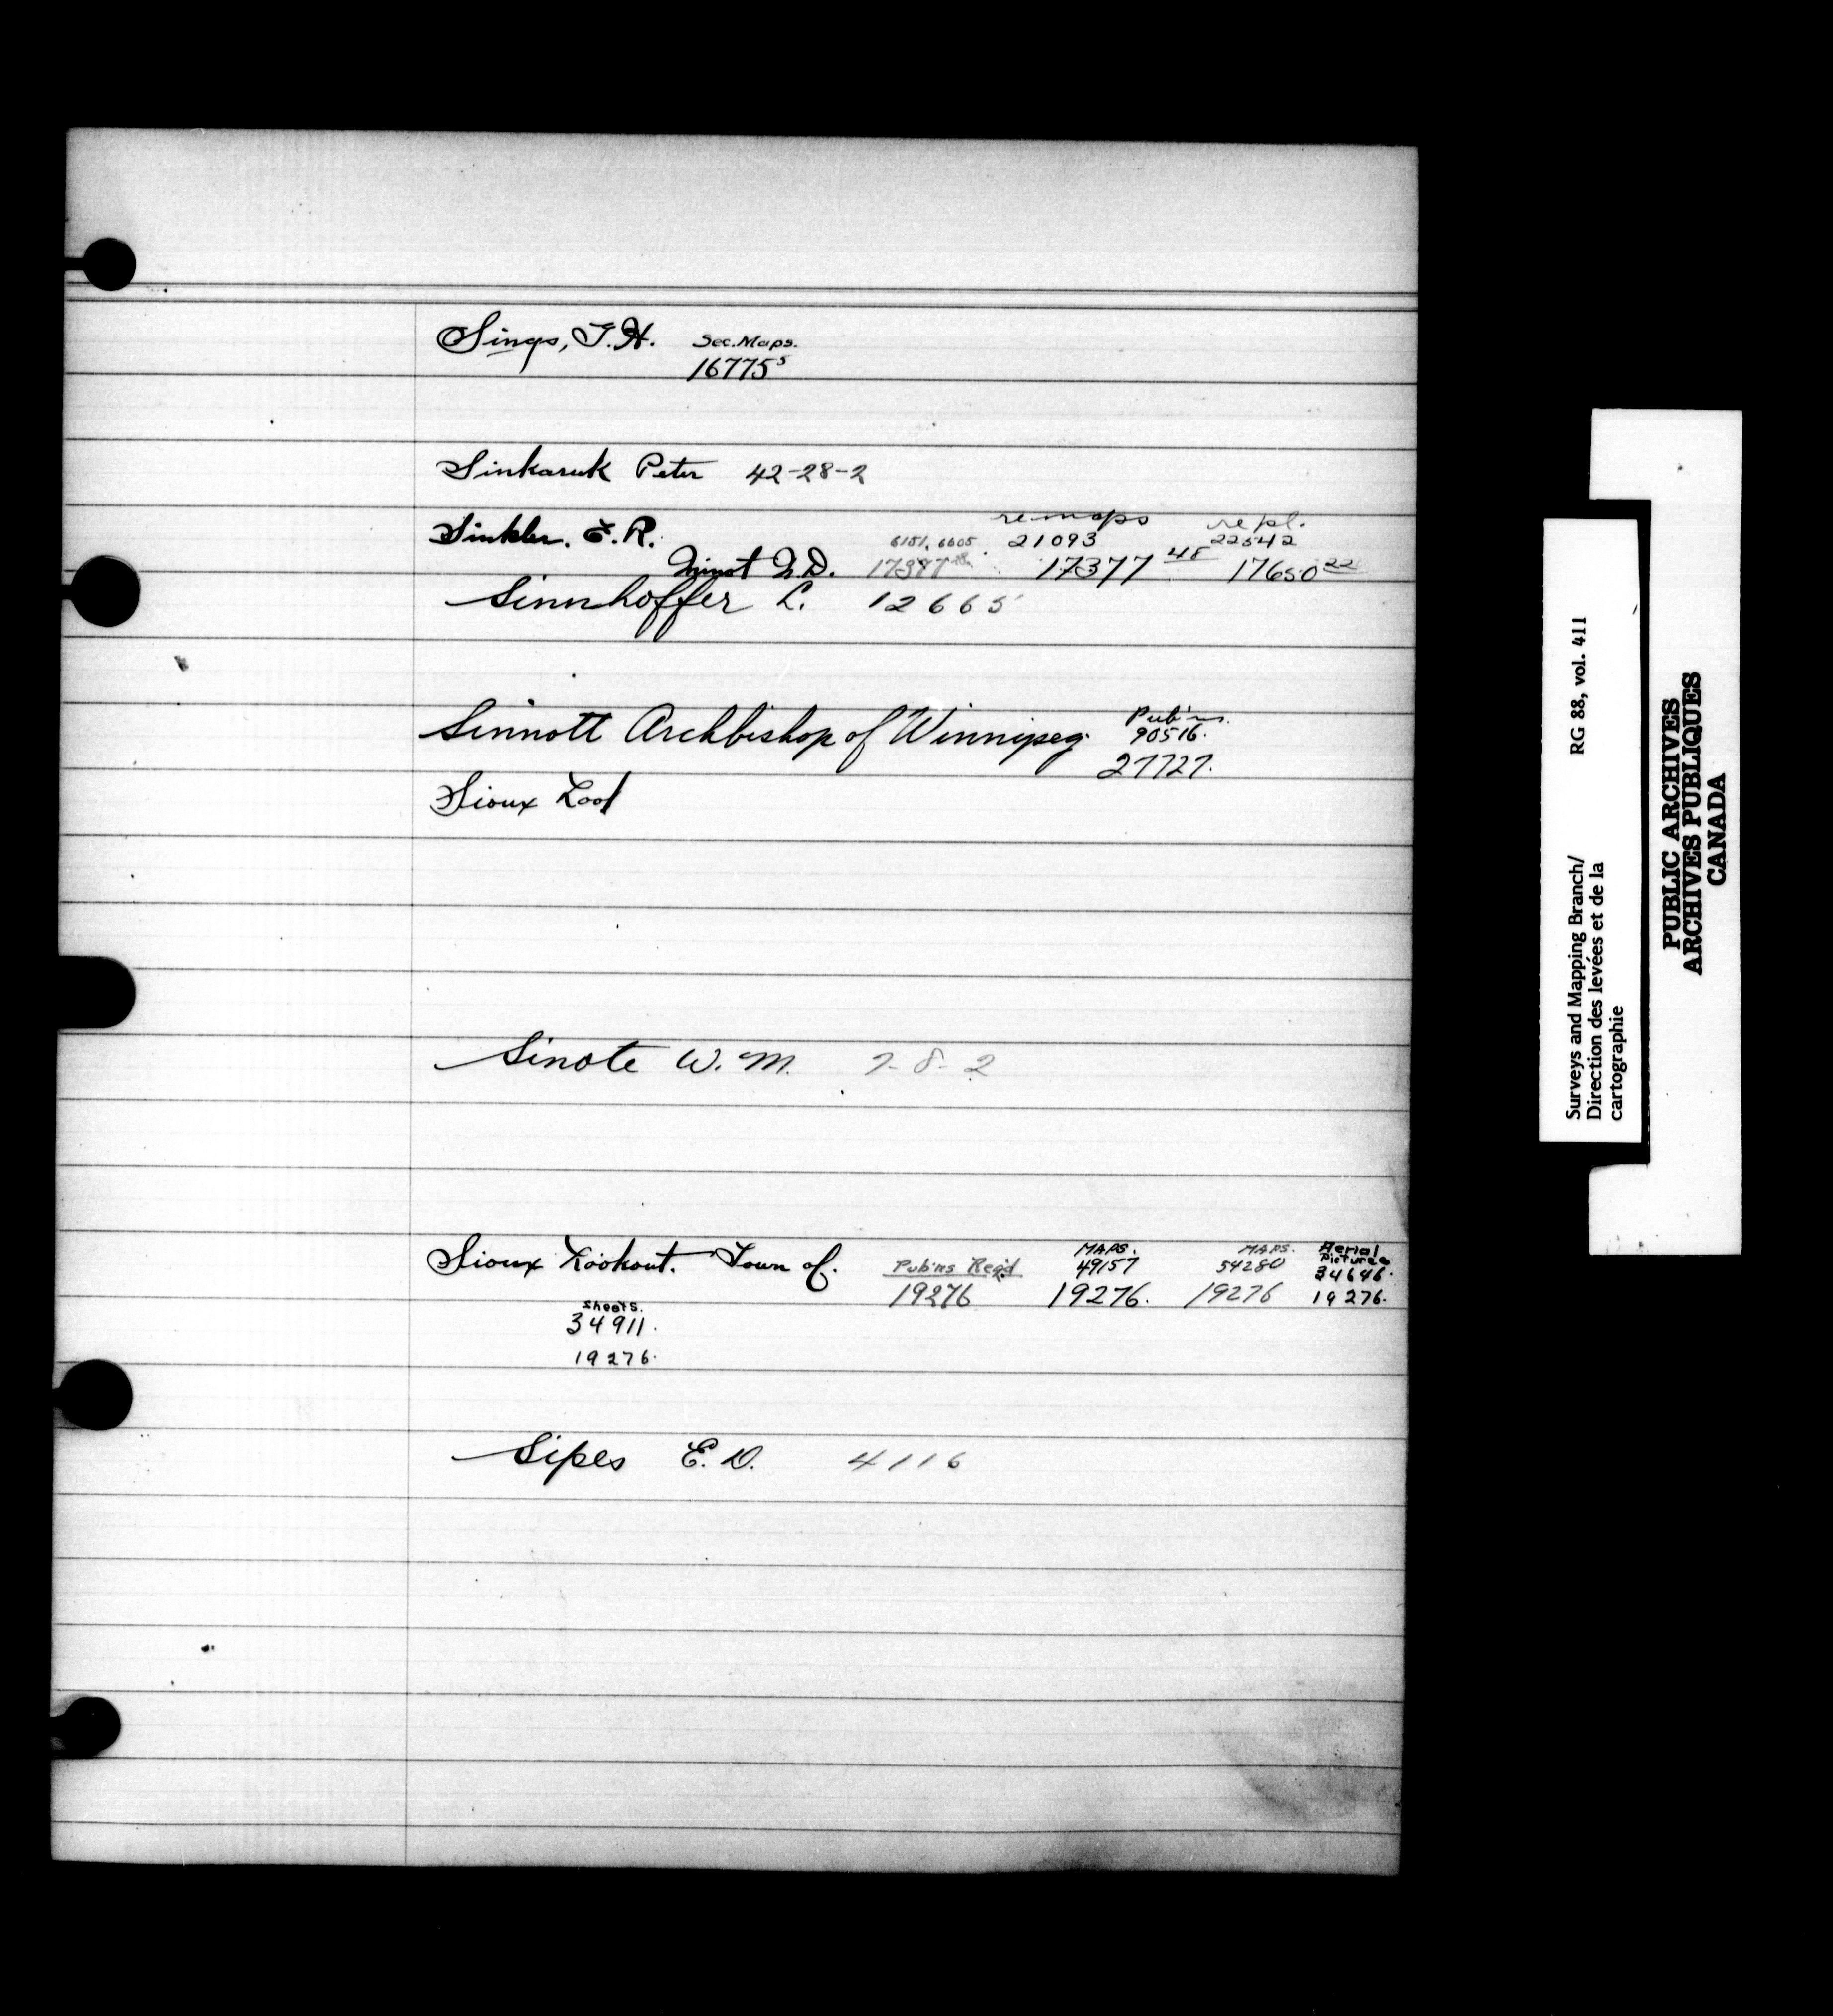 Sings, T. H. Sec. Maps.
16775⁵
Sinkaruk Peter 42-28-2
re maps re pl.
Sinkler. E. R. 6151, 6605 21093 22542
Minot N. D. 17377 17377 48 17650 22
Sinnhoffer L. 12665
Sinnott Archbishop of Winnipeg. Pub'ns.
90516.
27727.
Sioux Lool
Sinote W. M. 7-8-2
Sioux Lookout. Town of. Pub'ns Req'd MAPS. MAPS. Aerial Pictures
49157 54280 34646.
19276 19276. 19276 19276.
Sheets.
34911.
19276.
Sipes E. D. 4116
Surveys and Mapping Branch/ RG 88, vol. 411
Direction des levées et de la
cartographie
PUBLIC ARCHIVES
ARCHIVES PUBLIQUES
CANADA